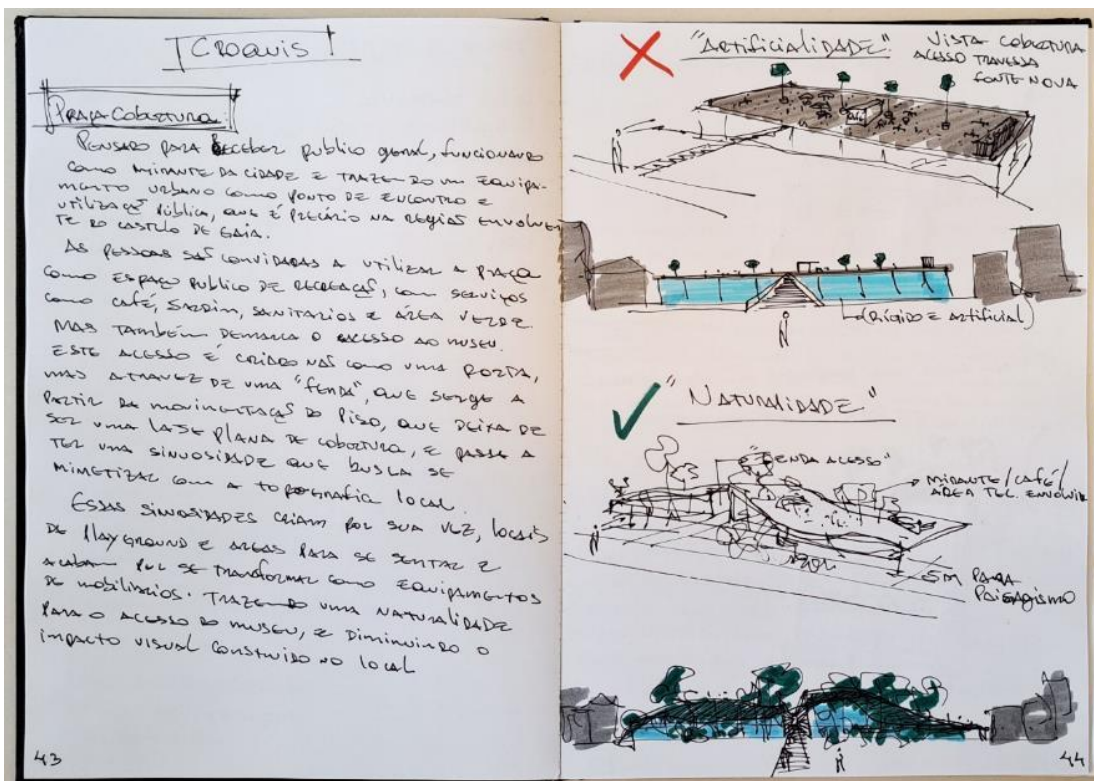 CROQUIS
PRAÇA COBERTURA
PENSADO PARA RECEBER PUBLICO GERAL, FUNCIONANDO
COMO MIRANTE DA CIDADE E TRAZENDO UM EQUIPA-
MENTO URBANO COMO PONTO DE ENCONTRO E
UTILIZAÇÃ PÚBLICA, QUE É PRECÁRIO NA REGIÃO ENVOLVEN
TE DO CASTELO DE GAIA.
AS PESSOAS SÃO CONVIDADAS A UTILIZAR A PRAÇA
COMO ESPAÇO PUBLICO DE RECREAÇÃ, COM SERVIÇOS
COMO CAFÉ, JARDIM, SANITARIOS E ÁREA VERDE.
MAS TAMBÉM DEMARCA O ACESSO AO MUSEU.
ESTE ACESSO É CRIADO NÃO COMO UMA PORTA,
MAS ATRAVEZ DE UMA "FENDA", QUE SURGE A
PARTIR DA MOVIMENTAÇÃ DO PISO, QUE DEIXA DE
SER UMA LAJE PLANA DE COBERTURA, E PASSA A
TER UMA SINUOSIDADE QUE BUSCA SE
MIMETIZAR COM A TOPOGRAFIA LOCAL.
ESSAS SINUOSIDADES CRIAM POR SUA VEZ, LOCAIS
DE PLAYGROUND E AREAS PARA SE SENTAR E
ACABAM POR SE TRANSFORMAR COMO EQUIPAMENTOS
DE MOBILIÁRIOS. TRAZENDO UMA NATURALIDADE
PARA O ACESSO DO MUSEU, E DIMINUINDO O
IMPACTO VISUAL CONSTRUIDO NO LOCAL
43
"ARTIFICIALIDADE"
VISTA COBERTURA
ACESSO TRAVESSA
FONTE NOVA
(RÍGIDO E ARTIFICIAL)
"NATURALIDADE"
"FENDA ACESSO"
MIRANTE/CAFÉ/
ÁREA TEC.
5M PARA
PAISAGISMO
44